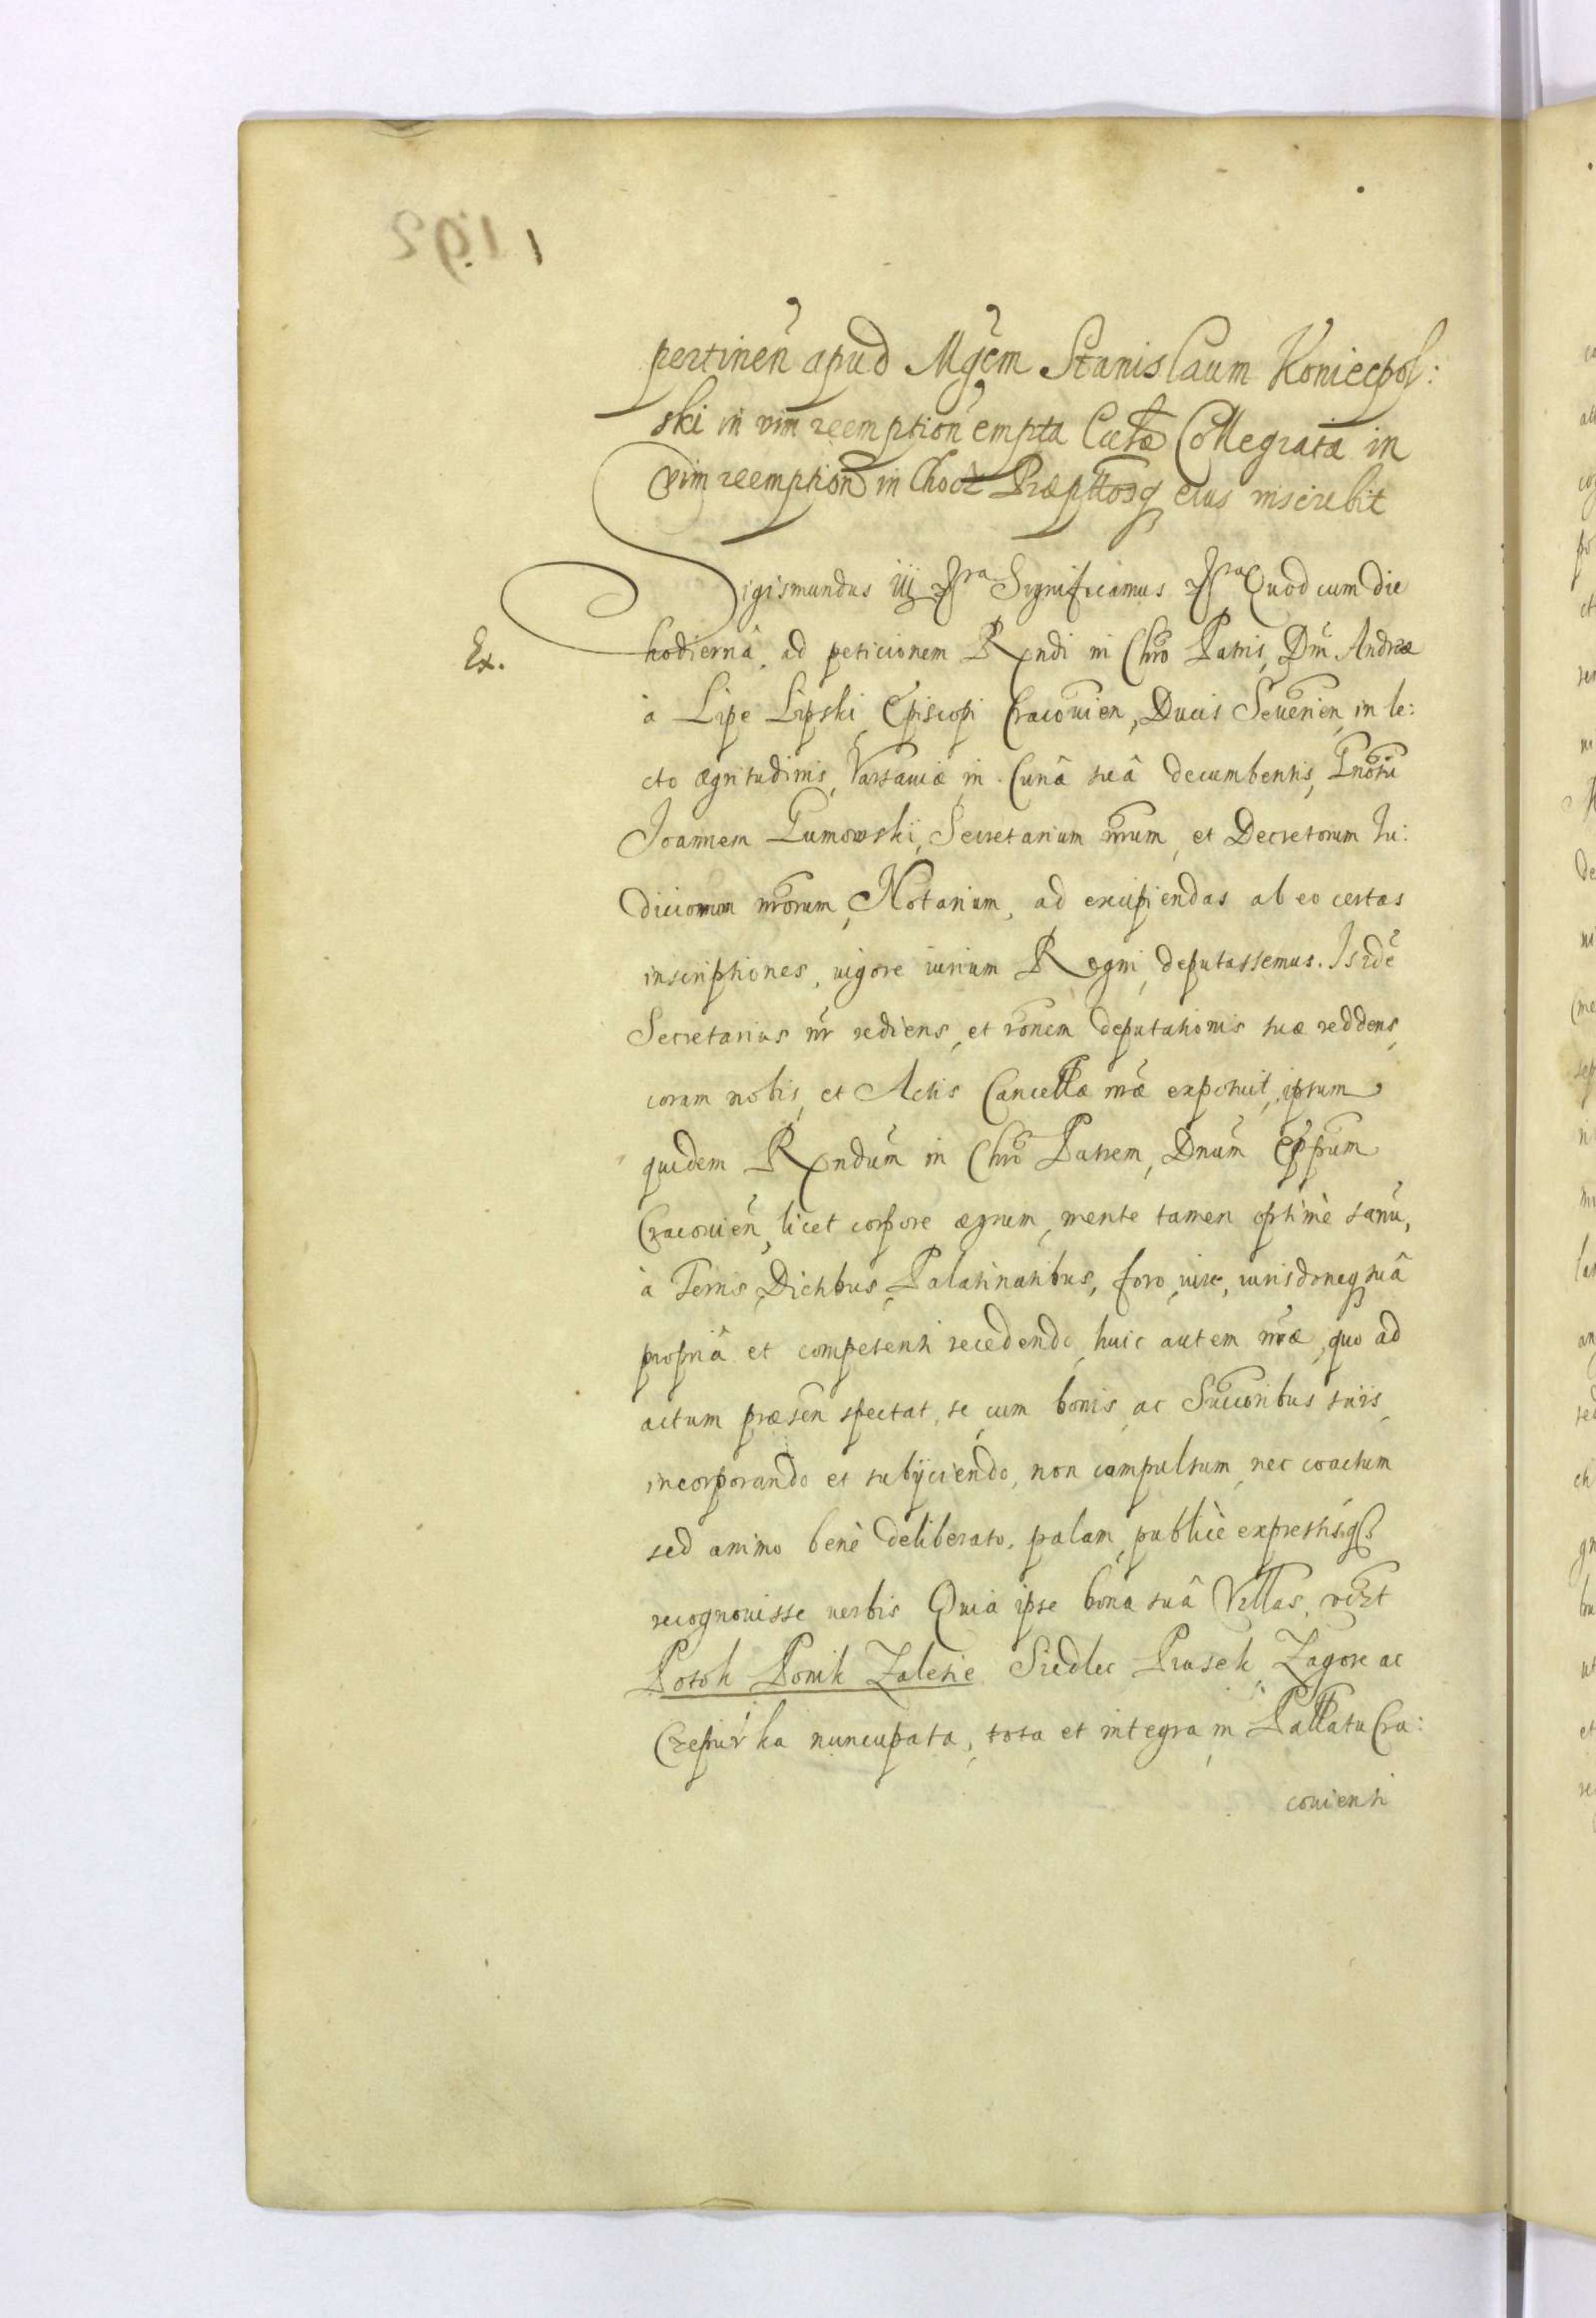 pertinen apud Mgcm Stanislaum Koniecpol:
ski in vim reemption empta Eccłae Collegiatæ in
vim reemption in Chocz Præpttoq eius inscribit
Sigismundus iij Significamus Quod cum die
Ex.
hodiernâ, ad peticionem Rndi in Chro Patris, Dni Andreæ
à Lipe Lipski, Episcopi Cracouien, Ducis Seuerien, in le:
cto ægritudinis, Varsauiæ in Curiâ suâ decumbentis, Gnosu
Joannem Gumowski, Secretarium nrum, et Decretorum Iu:
diciorum nrorum, Notarium, ad excipiendas ab eo certas
inscriptiones, uigore iurium Regni, deputassemus. Is ide
Secretarius nr rediens, et ronem deputationis suæ reddens,
coram nobis, et Actis Cancellæ nræ exposuit, ipsum
quidem Rndum in Chro Patrem, Dnum Eppum
Cracouien, licet corpore ægrum, mente tamen optimè sanu,
à Terris, Dictbus, Palatinatibus, foro, iure, iurisdoneq suâ
propriâ et competenti recedendo, huic autem nræ, quo ad
actum præsen spectat, se cum bonis, ac Succoribus suis,
incorporando et subijciendo, non compulsum, nec coactum
sed animo benè deliberato, palam, publicè expressisq
recognouisse uerbis Quia ipse bona suâ Villas, vdzt
Potok Ponik Zalesie Siedlec Prusek, Zagorze ac
Czepurka nuncupata, tota et integra, in Pallatu Cra:
couiensi